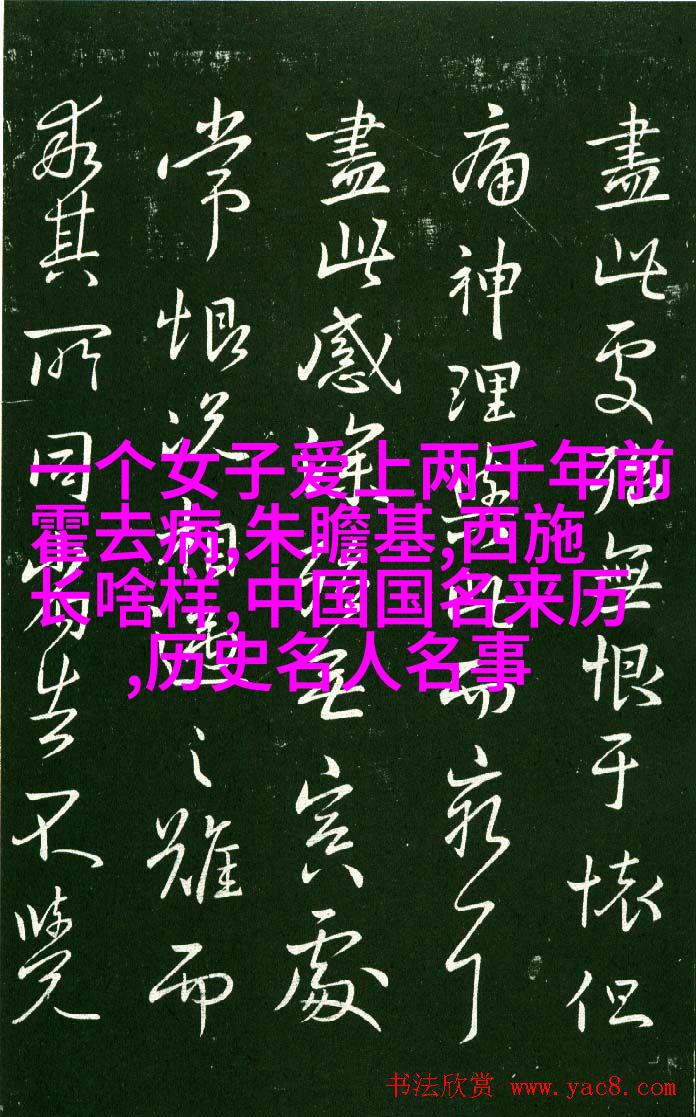 一个女子爱上两千年前
霍去病,朱瞻基,西施
长啥样,中国国名来历
,历史名人名事
盡此無恨于懷但
痛神理而
盡此感無寘處
常恨況相之難而
其所同
书法欣赏 www.yac8.com